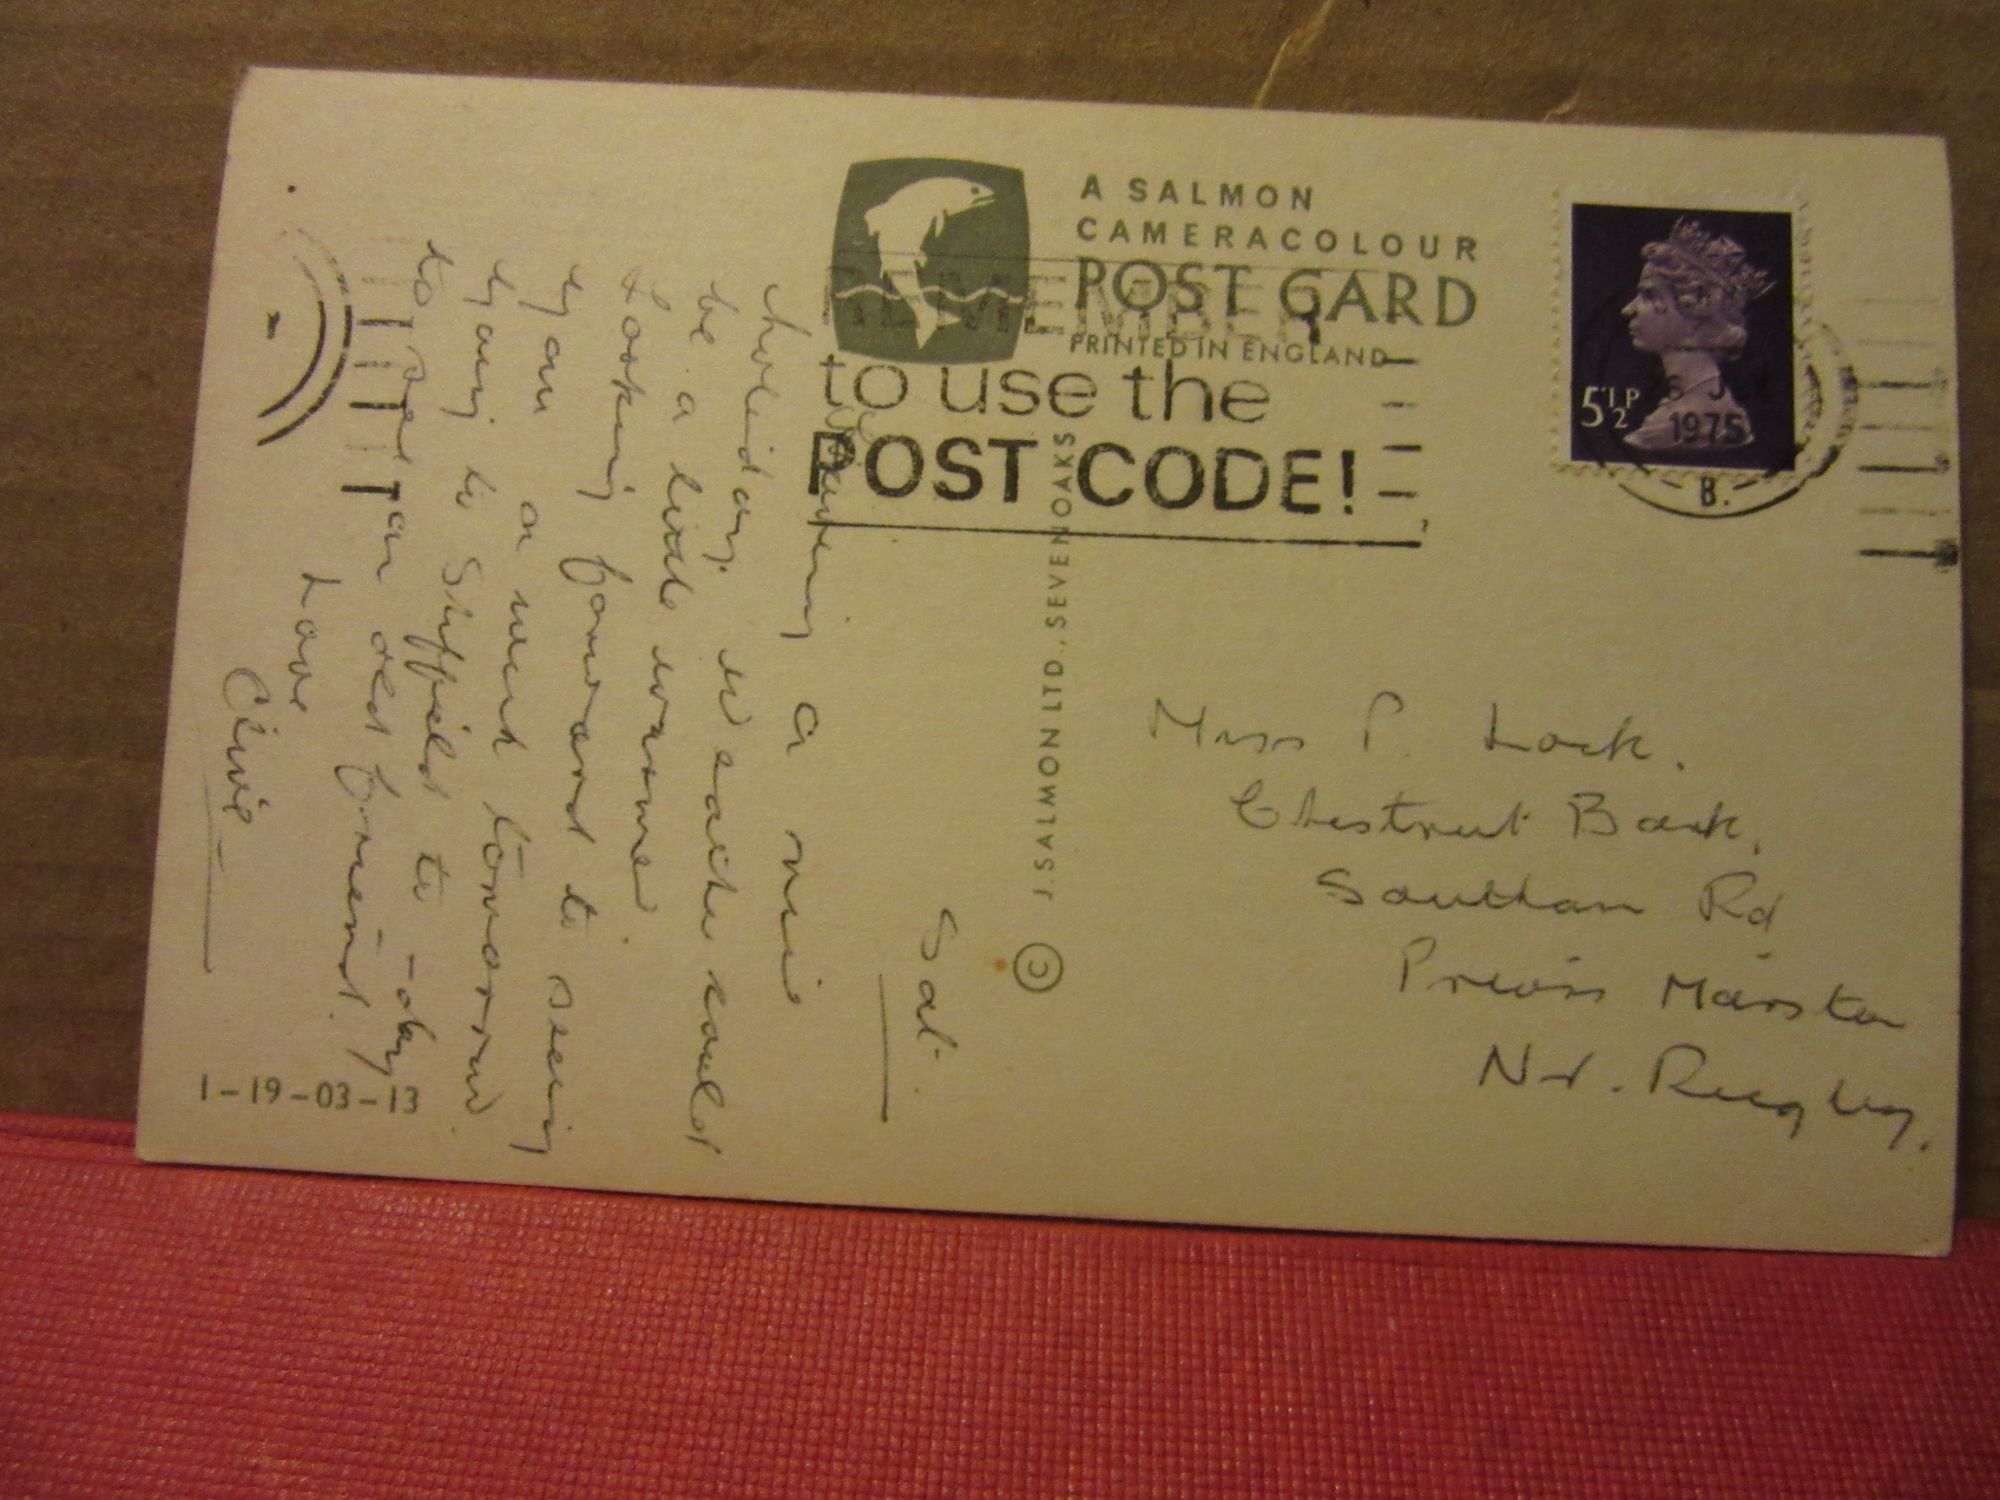 A SALMON
CAMERACOLOUR
POST CARD
PRINTED IN ENGLAND
REMEMBER
to use the
POST CODE!
5½P
1975
B.
© J. SALMON LTD., SEVENOAKS
Sat.
Having a nice
holiday, weather could
be a little warmer
Looking forward to seeing
you on next tomorrow
going to Sheffield to-day
to see an old friend.
Love
Clive
1-19-03-13
Miss P. Lock.
Chestnut Bank,
Southam Rd
Priors Marston
Nr. Rugby.